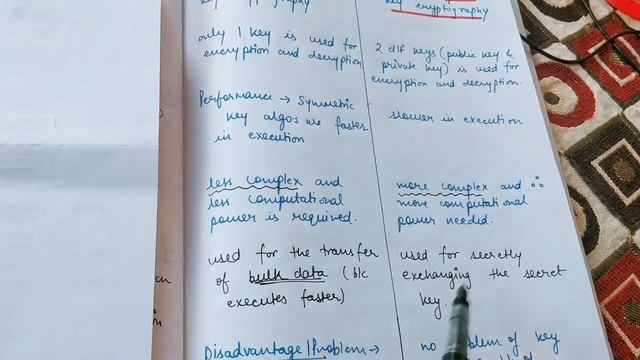 key cryptography
only 1 key is used for
encryption and decryption
2 diff keys (public key &
private key) is used for
encryption and decryption.
Performance → Symmetric
key algo.s are faster
in execution
slower in execution
less complex and
less computational
power is required.
more complex and ∴
more computational
power needed.
used for the transfer
of bulk data (b/c
executes faster)
used for secretly
exchanging the secret
key.
Disadvantage/Problem →
no problem of key